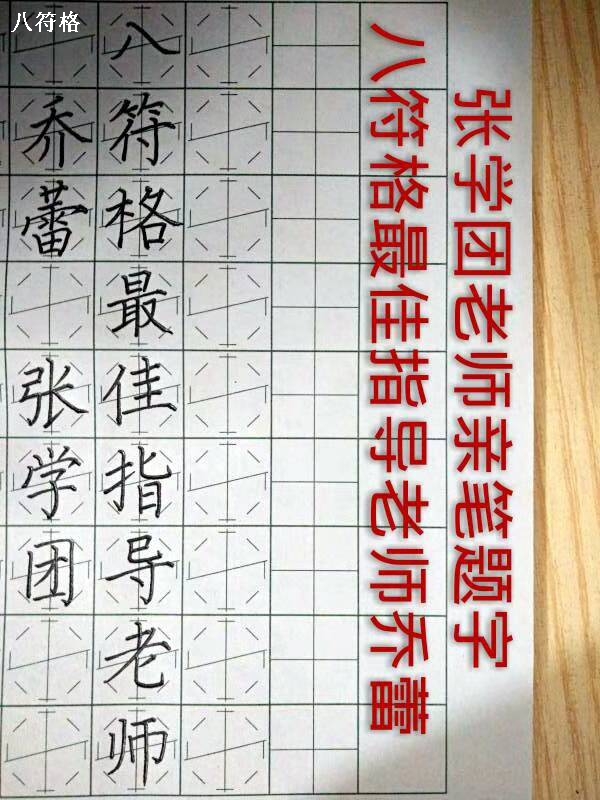 八符格
张学团老师亲笔题字
八符格最佳指导老师乔蕾
八符格最佳指导老师
乔蕾 张学团